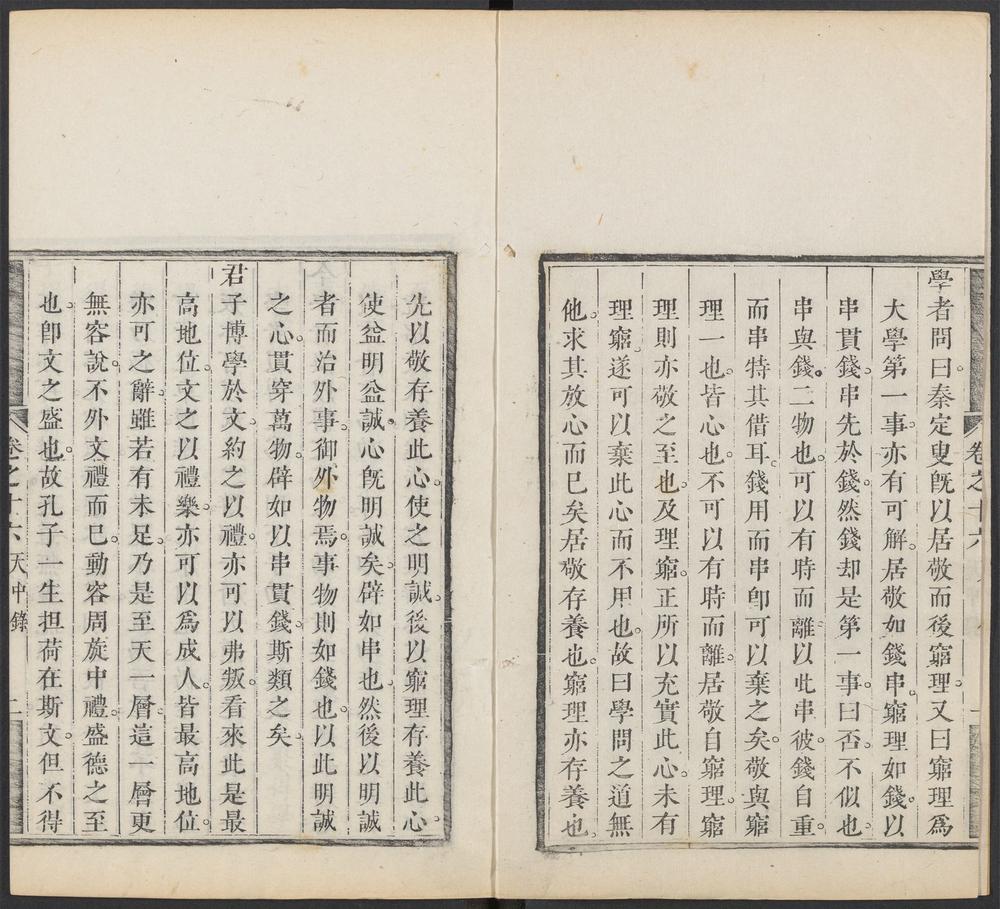 學者問曰秦定叟旣以居敬而後窮理又曰窮理爲
大學第一事亦有可解居敬如錢串窮理如錢以
串貫錢串先於錢然錢却是第一事曰否不似也
串與錢二物也可以有時而離以此串彼錢自重
而串特其借耳錢用而串卽可以棄之矣敬與窮
理一也皆心也不可以有時而離居敬自窮理窮
理則亦敬之至也及理窮正所以充實此心未有
理窮遂可以棄此心而不用也故曰學問之道無
他求其放心而已矣居敬存養也窮理亦存養也
卷之十六
一
先以敬存養此心使之明誠後以窮理存養此心
使益明益誠心旣明誠矣辟如串也然後以明誠
者而治外事御外物焉事物則如錢也以此明誠
之心貫穿萬物辟如以串貫錢斯類之矣
君子博學於文約之以禮亦可以弗叛看來此是最
高地位文之以禮樂亦可以爲成人皆最高地位
亦可之辭雖若有未足乃是至天一層這一層更
無容說不外文禮而已動容周旋中禮盛德之至
也卽文之盛也故孔子一生担荷在斯文但不得
卷之十六 天中錄
二